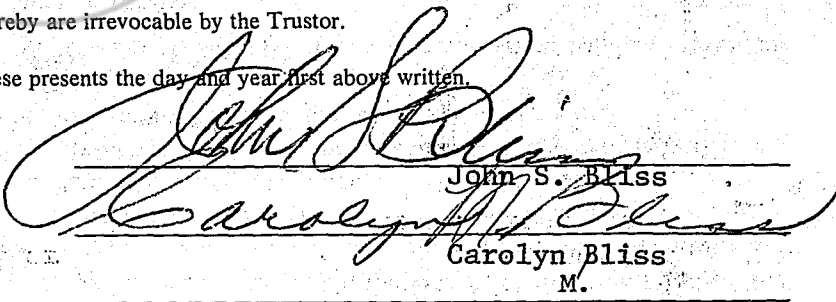 reby are irrevocable by the Trustor.
ese presents the day and year first above written.
John S Bliss
John S. Bliss
Carolyn M Bliss
Carolyn Bliss
M.